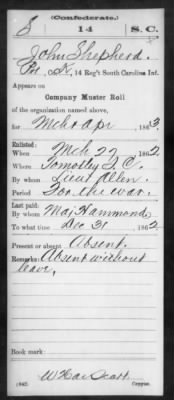 (Confederate.)
S 14 S.C.
John Shepherd
Pvt, Co. K, 14 Reg't South Carolina Inf.
Appears on
Company Muster Roll
of the organization named above,
for Mch & Apr, 1863.
Enlisted:
When Mch 22, 1862.
Where Pomotley S.C.
By whom Lieut Allen
Period For the war.
Last paid:
By whom Maj Hammond
To what time Dec 31, 1862.
Present or absent Absent.
Remarks: Absent without
leave.
Book mark:
(642)
Copyist.